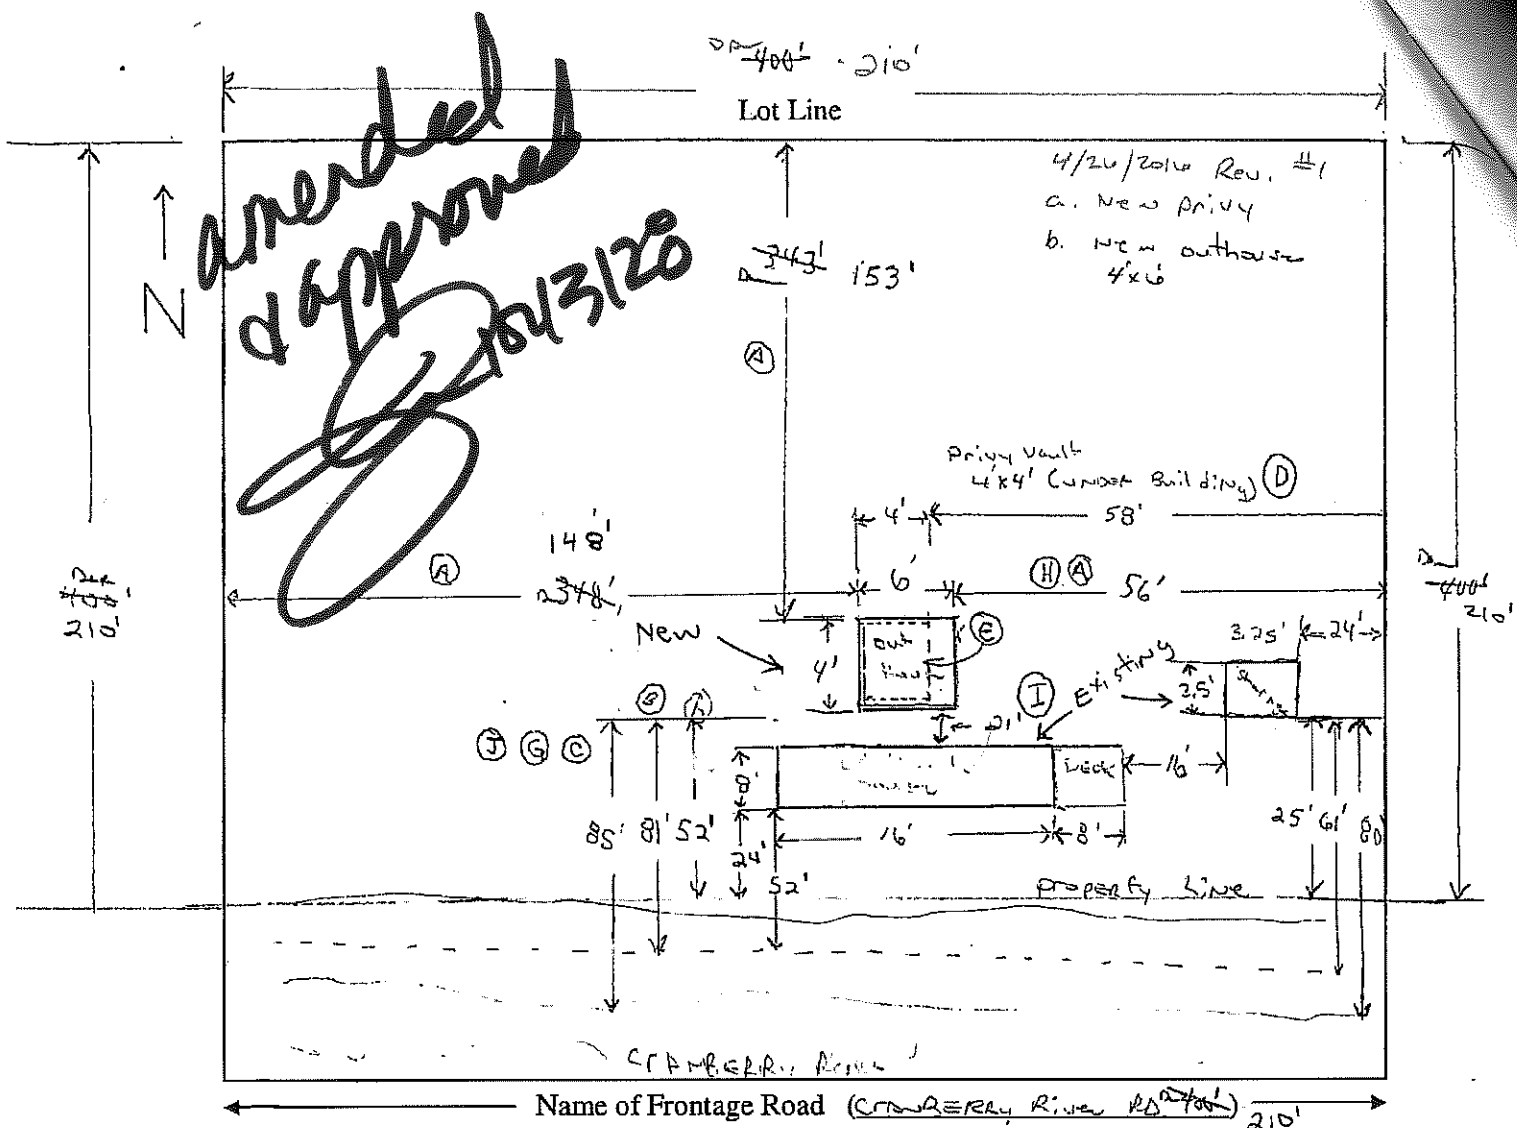 400' 210'
Lot Line
amended
& approved
4/26/2016 Rev. #1
a. New Privy
b. New outhouse
4'x6'
N
343' 153'
A
Privy Vault
4'x4' (UNDER Building) D
4' 58'
148'
A 348' 6' H A 56'
400'
210'
400'
210'
New
4'
out
E
3.25' 24'
Existing
3.5'
B
J G C
21' I
8' DECK 16'
85' 81' 52' 24' 16' 8' 25' 61' 80'
52'
Property Line
CRANBERRY River
Name of Frontage Road (CRANBERRY River RD 400')
210'